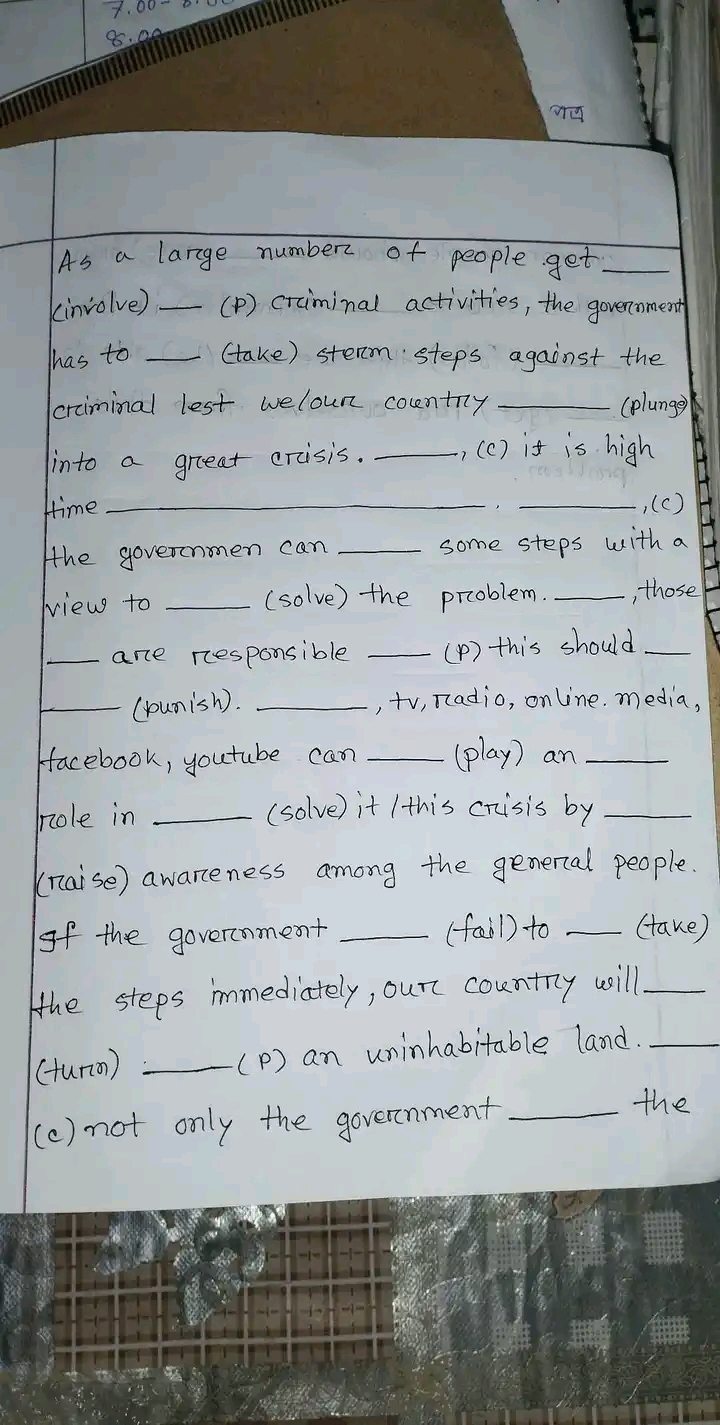 7.00-
8.00
As a large number of people get ____
(involve) ___ (P) criminal activities, the government
has to ___ (take) sterm steps against the
criminal lest we/our country ________ (plunge)
into a great crisis. ______, (C) it is high
time ____________________________. _________, (C)
the governmen can ______ some steps with a
view to ______ (solve) the problem. _____, those
____ are responsible ____ (P) this should ___
______ (punish). ________, tv, radio, online. media,
facebook, youtube can _____ (play) an ______
role in _______ (solve) it / this crisis by ______
(raise) awareness among the general people.
If the government ______ (fail) to ____ (take)
the steps immediately, our country will ____
(turn) ______ (P) an uninhabitable land. _____
(c) not only the government _______ the